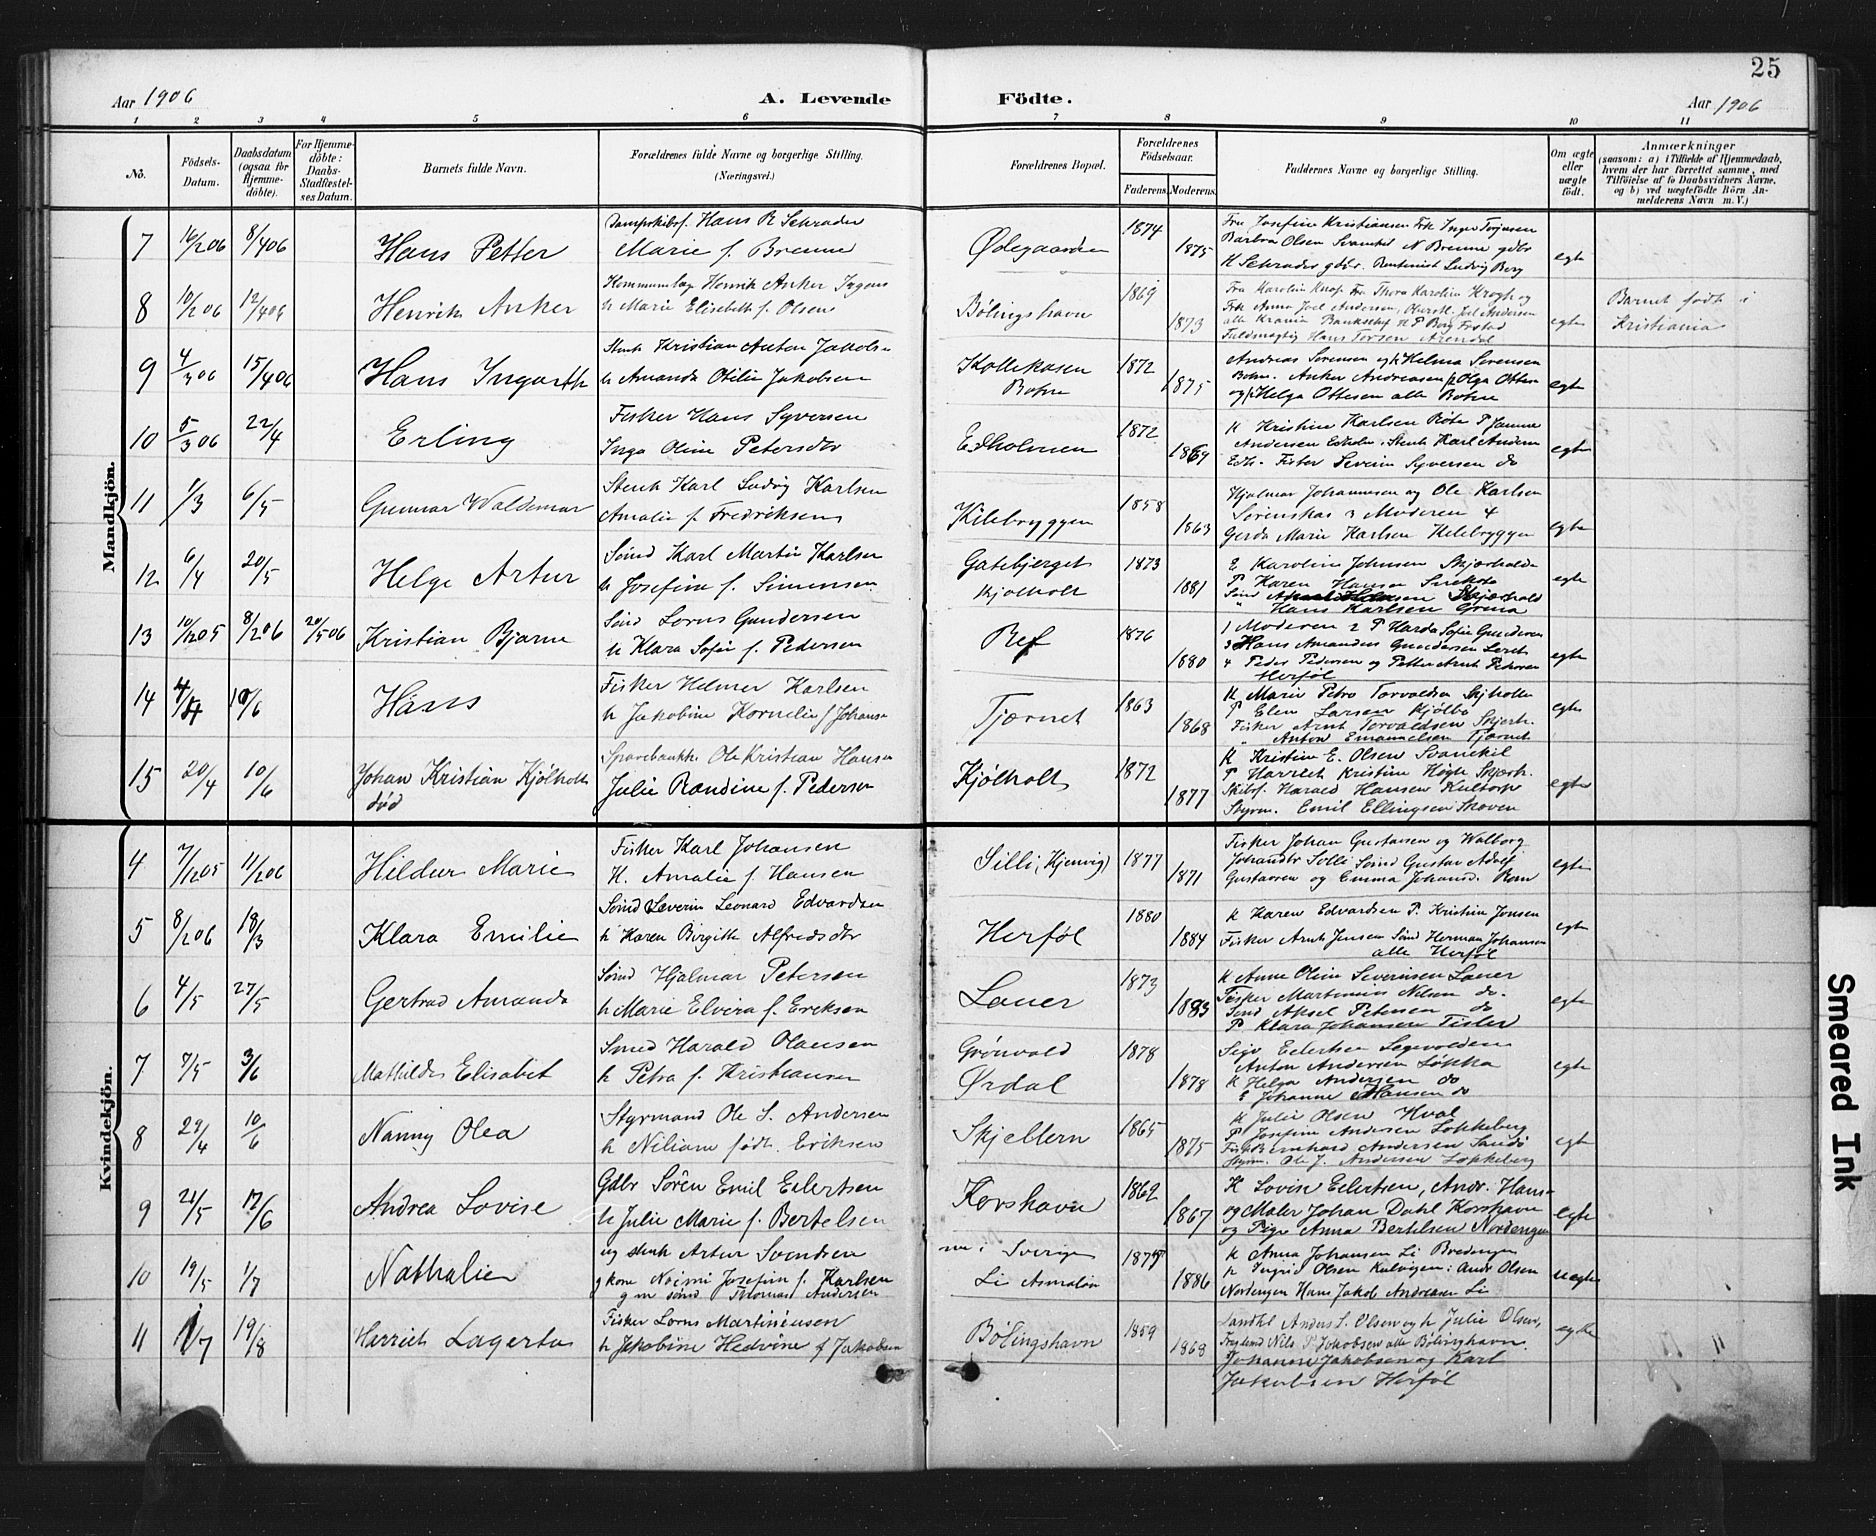 25
Aar 1906
A. Levende Födte.
Aar 1906
1 2 3 4 5 6 7 8 9 10 11
No.
Födsels-Datum.
Daabsdatum (ogsaa for Hjemme-döbte).
For Hjemme-döbte: Daabs-Stadfæstel-ses Datum.
Barnets fulde Navn.
Forældrenes fulde Navne og borgerlige Stilling.
(Næringsvei.)
Forældrenes Bopæl.
Forældrenes Födselsaar.
Faderens. Moderens.
Faddernes Navne og borgerlige Stilling.
Om ægte eller uægte födt.
Anmærkninger
(saasom: a) i Tilfælde af Hjemmedaab, hvem der har forrettet samme, med Tilföielse af to Daabsvidners Navne, og b) ved uægtefödte Börn An-melderens Navn m. V.)
Mandkjön.
7 16/2 06 8/4 06 Hans Petter
Hans R Schrader
Marie f. Brenne
Ødegaarden 1874 1875
Fru Josefine Kristiansen Frk Inger
Barbra Olsen Svanekil N Brenne gdbr
H Schrader gdbr. Rentenist Ludvig Berg
egte
8 10/2 06 12/4 06 Henrik Anker
Henrik Anker
h Marie Elisabeth f. Olsen
Bølingshavn 1869 1873
Fru Karolin Fru Thora Karolin Krogh og
Frk Anna Joel Andersen, Joel Andersen
alle Krania P Berg
Fuldmægtig Hans Arendal
egte
Barnet født i
Kristiania
9 4/3 06 15/4 06 Hans Ingarth
Stenh Kristian Anton Jakobs
h Amanda Otilie Jakobsen
Kollekasen
Botne
1872 1875
Andreas Sørensen og Helma Sørensen
Botne. Anker Andreasen Olga Ottesen
og Helga Ottesen alle Botne
egte
10 5/3 06 22/4 Erling
Fisker Hans Syversen
Inga Oline Petersdtr
Edholmen 1872 1869
K Kristine Karlsen P
Andersen Stenh Karl Andersen
Edh. Fisker Severin Syversen do
egte
11 1/3 6/5 Gunnar Waldemar
Stenh Karl Ludvig Karlsen
Amalie f. Fredriksen
Kilebryggen 1858 1863
Hjalmar Johannesen og Ole Karlsen
3 Moderen 4
Gerda Marie Karlsen Kilebryggen
egte
12 6/4 20/5 Helge Artur
Sømd Karl Martin Karlsen
h Josefine f. Simensen
Gatebjerget
Kjølholt
1873 1881
E Karoline Johnsen
P Karen Hansen
Hans Karlsen
egte
13 10/12 05 8/2 06 20/5 06 Kristian Bjarne
Sømd Lorns Gundersen
h Klara Sofie f. Pedersen
Ref 1876 1880
1 Moderen 2 P Harda Sofie Gundersen
3 Hans Amandus Gundersen
4 Peder Pedersen og Petter Arnt Pedersen
Herføl
egte
14 4/4 10/6 Hans
Fisker Helmer Karlsen
h Jakobine Kornelie f Johans
Tjærnet 1863 1868
K Marie Petra Torvaldsen
P Elen Larsen Kjølbo
Fisker Arnt Torvaldsen Skjærh.
" Anton Emanuelsen Tjærnet
egte
15 20/4 10/6 Johan Kristian Kjølholt
død
Ole Kristian Hansen
Julie Randine f. Pedersen
Kjølholt 1872 1877
K Kristine E. Olsen Svanekil
P Harriet Kristine Høgh Skjærh.
Skibsf. Harald Hansen Kultorp
Styrm. Emil Ellingsen Skoven
egte
Kvindekjön.
4 7/12 05 11/2 06 Hildur Marie
Fisker Karl Johansen
H. Amalie f. Hansen
Silli, (Kjenvig) 1877 1871
Fisker Johan Gustavsen og Walborg
Johansdtr Solli Sømd Gustav Adolf
Gustavsen og Emma Johansd.
egte
5 8/2 06 18/3 Klara Emilie
Sømd Severin Leonard Edvardsen
h Karen Birgitte Alfredsdtr
Herføl 1880 1884
K Karen Edvardsen P. Kristine Jensen
Fisker Arnt Jensen Sømd Herman Johansen
alle Herføl
egte
6 4/5 27/5 Gertrud Amanda
Sømd Hjalmar Petersen
h Marie Elvira f. Eriksen
Lauer 1873 1883
K Anne Oline Severinsen Lauer
Fisker Martinius Nilsen do.
Sømd Aksel Petersen do
P Klara Johansen Tisler
egte
7 7/5 3/6 Mathilde Elisabet
Smed Harald Olausen
h Petra f. Kristiansen
Grønvold
Ørdal
1878 1878
Eilertsen
Anton Andersen Løkka
K Helga Andersen do
E Johanne Hansen do
egte
8 29/4 10/6 Nanny Olea
Styrmand Ole S. Andersen
h Niliane født Eriksen
Skjellern 1865 1875
K Julie Olsen Hval
P Josefine Andersen Løkkeberg
Bernhard Andersen Sandø
Styrm. Ole J. Andersen Løkkeberg
egte
9 21/5 17/6 Andrea Lovise
Gdbr Søren Emil Eilertsen
h Julie Marie f. Bertelsen
Korshavn 1862 1867
K Lovise Eilertsen, Andr. Hans
og Maler Johan Dahl Korshavn
og Pige Anna Bertelsen Nordengen
egte
10 19/5 1/7 Nathalie
ug stenh Artur Svendsen
g kone Noimi Josefine f. Karlsen
g m sømd Thomas Andersen
nu i Sverige
Li Asmaløi
1877 1886
K Anna Johansen Li Bredengen
h Ingrid Olsen Andr Olsen
Nordengen Hans Jakob Andreasen Li
uegte
11 1/7 19/8 Harriet Lagerta
Fisker Lorns Martinéusen
h Jakobine Hedvine f Jakobsen
Bølingshavn 1859 1868
Landhl Anders S. Olsen og h Julie Olsen,
Nils P Jakobsen alle Bølingshavn.
Johanne Jakobsen og Karl
Jakobsen Herføl
egte
Smeared Ink